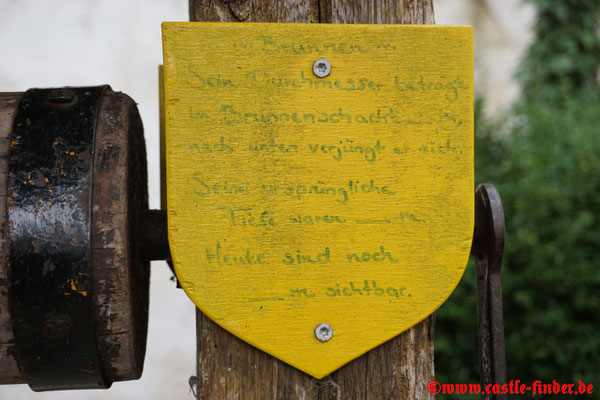 ~ Brunnen ~
Sein Durchmesser beträgt
im Brunnenschacht m,
nach unten verjüngt er sich.
Seine ursprüngliche
Tiefe waren ___ m.
Heute sind noch
___ m sichtbar.
©www.castle-finder.de